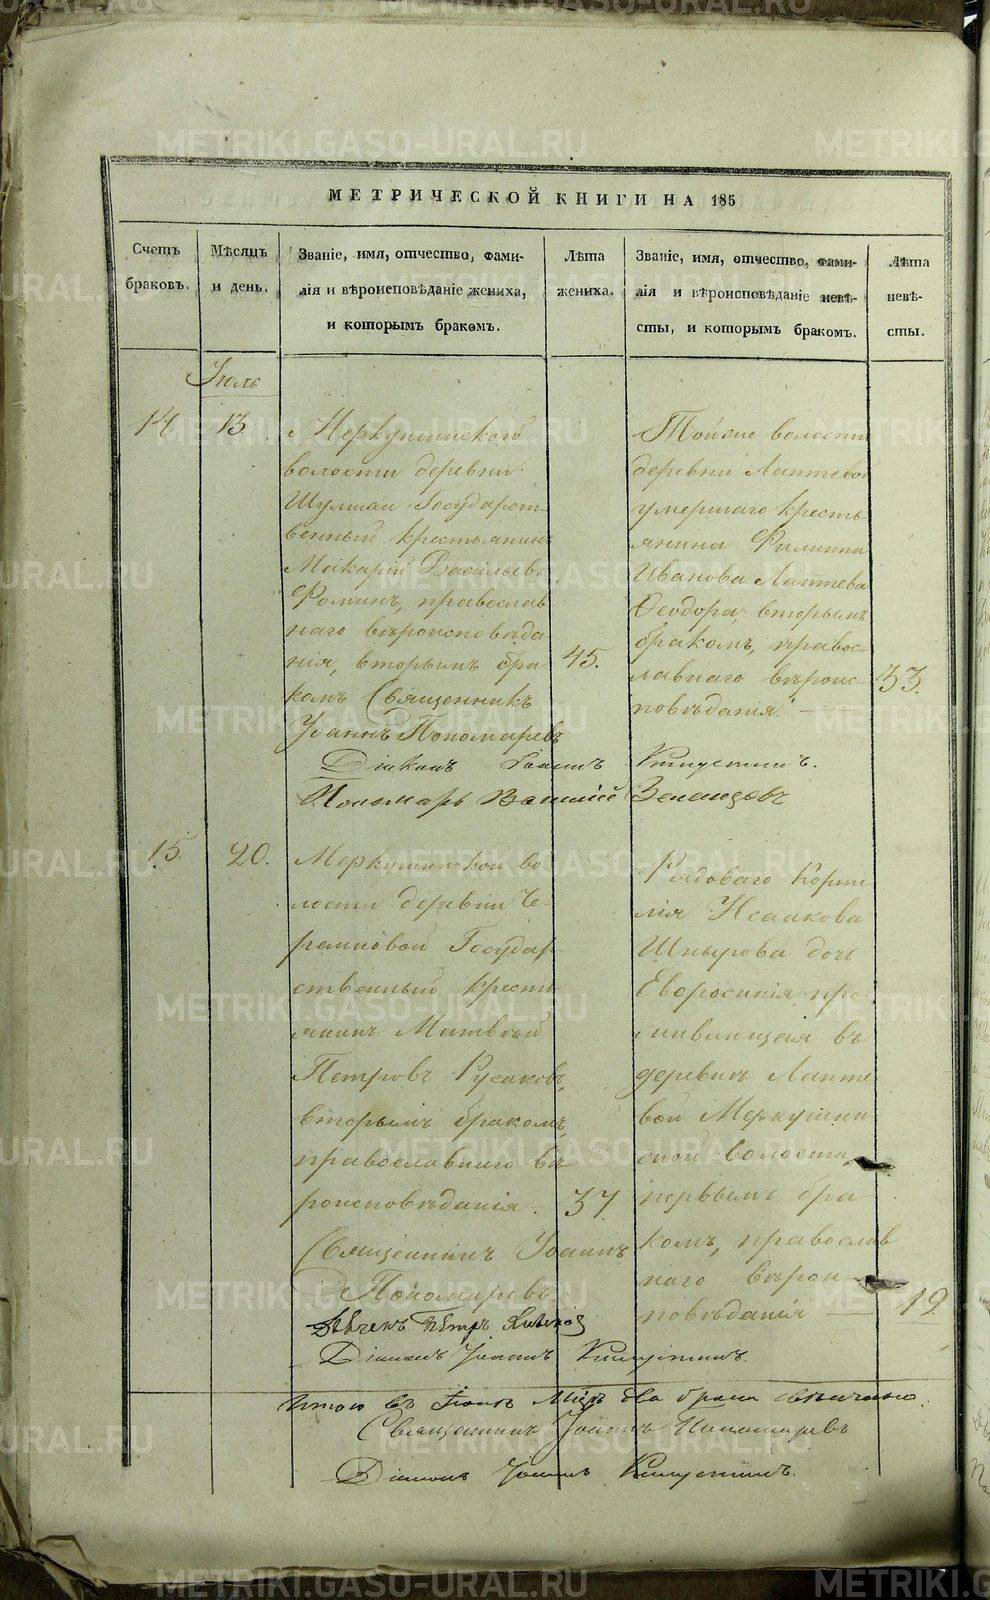 МЕТРИЧЕСКОЙ КНИГИ НА 185
Счетъ браковъ.
Мѣсяцъ и день.
Званіе, имя, отчество, фами-
лія и вѣроисповѣданіе жениха,
и которымъ бракомъ.
Лѣта жениха.
Званіе, имя, отчество, фами-
лія и вѣроисповѣданіе невѣ-
сты, и которымъ бракомъ.
Лѣта невѣ-
сты.
Іюль
14
13
Меркушинской
волости деревни
Государст-
венный крестьянинъ
Макарій Васильевъ
Фоминъ, православ
наго вѣроисповѣда
нія, вторымъ бра-
комъ Священникъ
Іоаннъ Пономаревъ
45.
Тойже волости
деревни Лаптевой
умершаго кресть-
янина Филиппа
Иванова Лаптева
Ѳеодора, вторымъ
бракомъ, правос-
лавнаго вѣроис-
повѣданія.
33.
Діаконъ Іоаннъ
Пономарь Василій
15.
20.
Меркушинской во
лости деревни
Государ
ственный кресть
янинъ Матвѣй
Петровъ Русаковъ,
вторымъ бракомъ,
православнаго вѣ
роисповѣданія.
37
Священникъ Іоаннъ
Пономаревъ
Рядоваго Корни
лія Исаакова
дочь
Евфросинія, про-
живающая въ
деревнѣ Лапте
вой Меркушин
ской волости,
первымъ бра-
комъ, православ
наго вѣрои
повѣданія
19.
Діаконъ Іоаннъ
Итого въ Іюлѣ Мцѣ два брака
Священникъ Іоаннъ Пономаревъ
Діаконъ Іоаннъ
METRIKI.GASO-URAL.RU